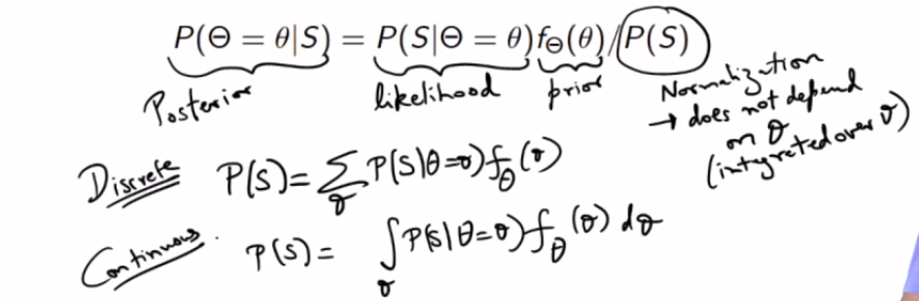 P(Θ = θ|S) = P(S|Θ = θ)f_Θ(θ)/P(S)
Posterior likelihood prior Normalization
→ does not depend
on θ
(integrated over θ)
Discrete P(S) = Σ_θ P(S|θ=θ) f_θ(θ)
Continuous. P(S) = ∫_θ P(S|θ=θ) f_θ(θ) dθ